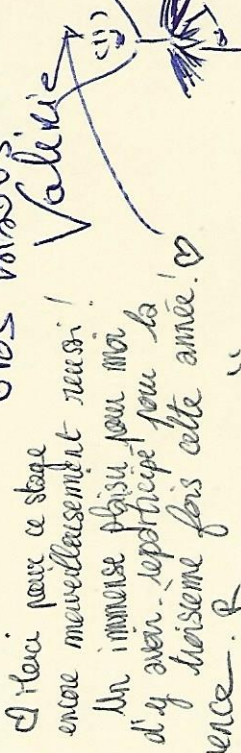 Valérie
♡ Merci pour ce stage
encore merveilleusement reussi!
Un immense plaisir pour moi
d'y avoir reparticipé pour la
troisieme fois cette année! ♡